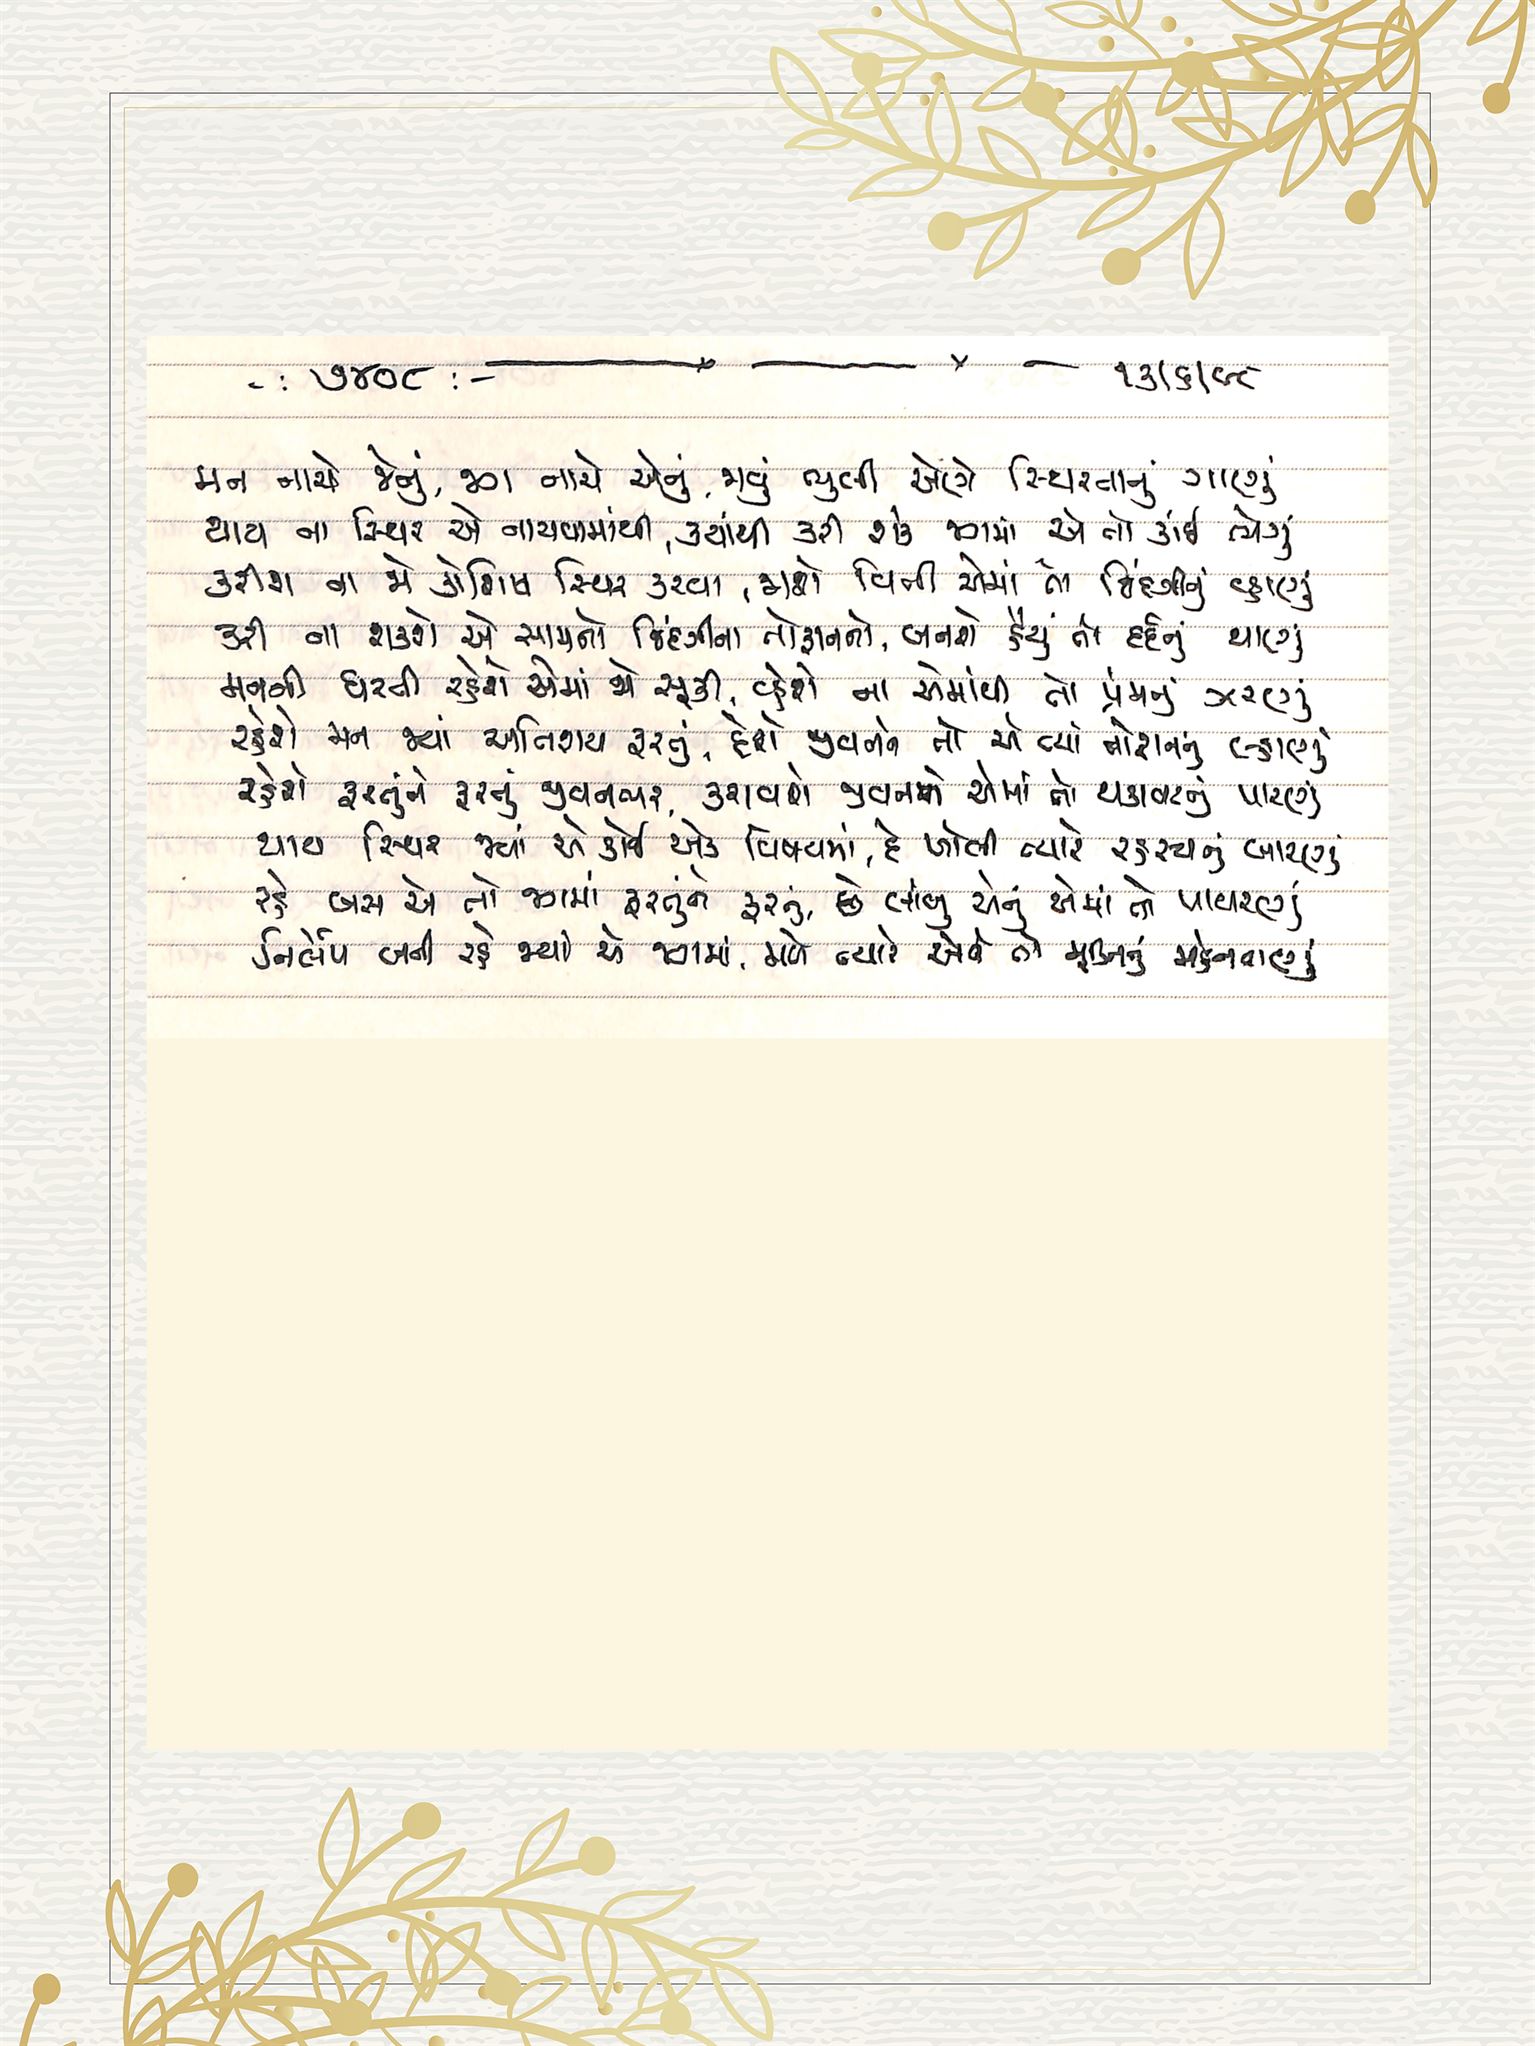 -: ૭૪૦૮ :- ૧૩/૬/૯૮
મન નાચે જેનું, જગ નાચે એનું, ગયું ભુલી એણે સ્થિરતાનું ગાણું
થાય ના સ્થિર એ નાચવામાંથી, ક્યાંથી કરી શકે જગમાં એ તો કાંઈ ભેગું
કરીશ ના જો કોશિષ સ્થિર કરવા, જાશે વિતી એમાં તો જિંદગીનું વ્હાણું
કરી ના શકશે એ સામનો જિંદગીના તોફાનનો, બનશે હૈયું તો દર્દનું થાણું
મનની ધરતી રહેશે એમાં જો સૂકી, વ્હેશે ના એમાંથી તો પ્રેમનું ઝરણું
રહેશે મન જ્યાં અતિશય ફરતું, દેશે જીવનને તો એ ત્યાં તોફાનનું લ્હાણું
રહેશે ફરતુંને ફરતું જીવનભર, કરાવશે જીવનને એમાં તો થકાવટનું પારણું
થાય સ્થિર જ્યાં એ કોઈ એક વિષયમાં, દે ખોલી ત્યારે રહસ્યનું બારણું
રહે બસ એ તો જગમાં ફરતુંને ફરતું, છે લાંબુ એનું એમાં તો પાથરણું
નિર્લેપ બની રહે જ્યાં એ જગમાં, મળે ત્યારે એને તો મૂક્તિનું મહેનતાણું